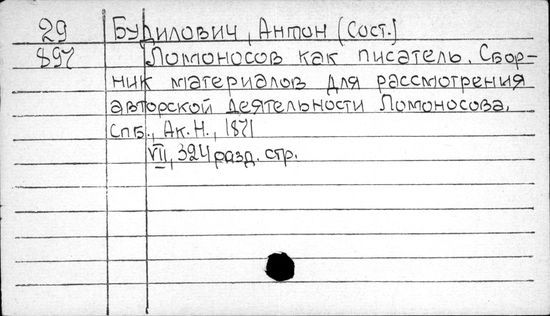 29 Будилович, Антон (Сост.)
897 Ломоносов как писатель. Сбор-
ник материалов для рассмотрения
авторской деятельности Ломоносова.
СПБ., Ак.Н., 1871
VII, 324 разд. стр.